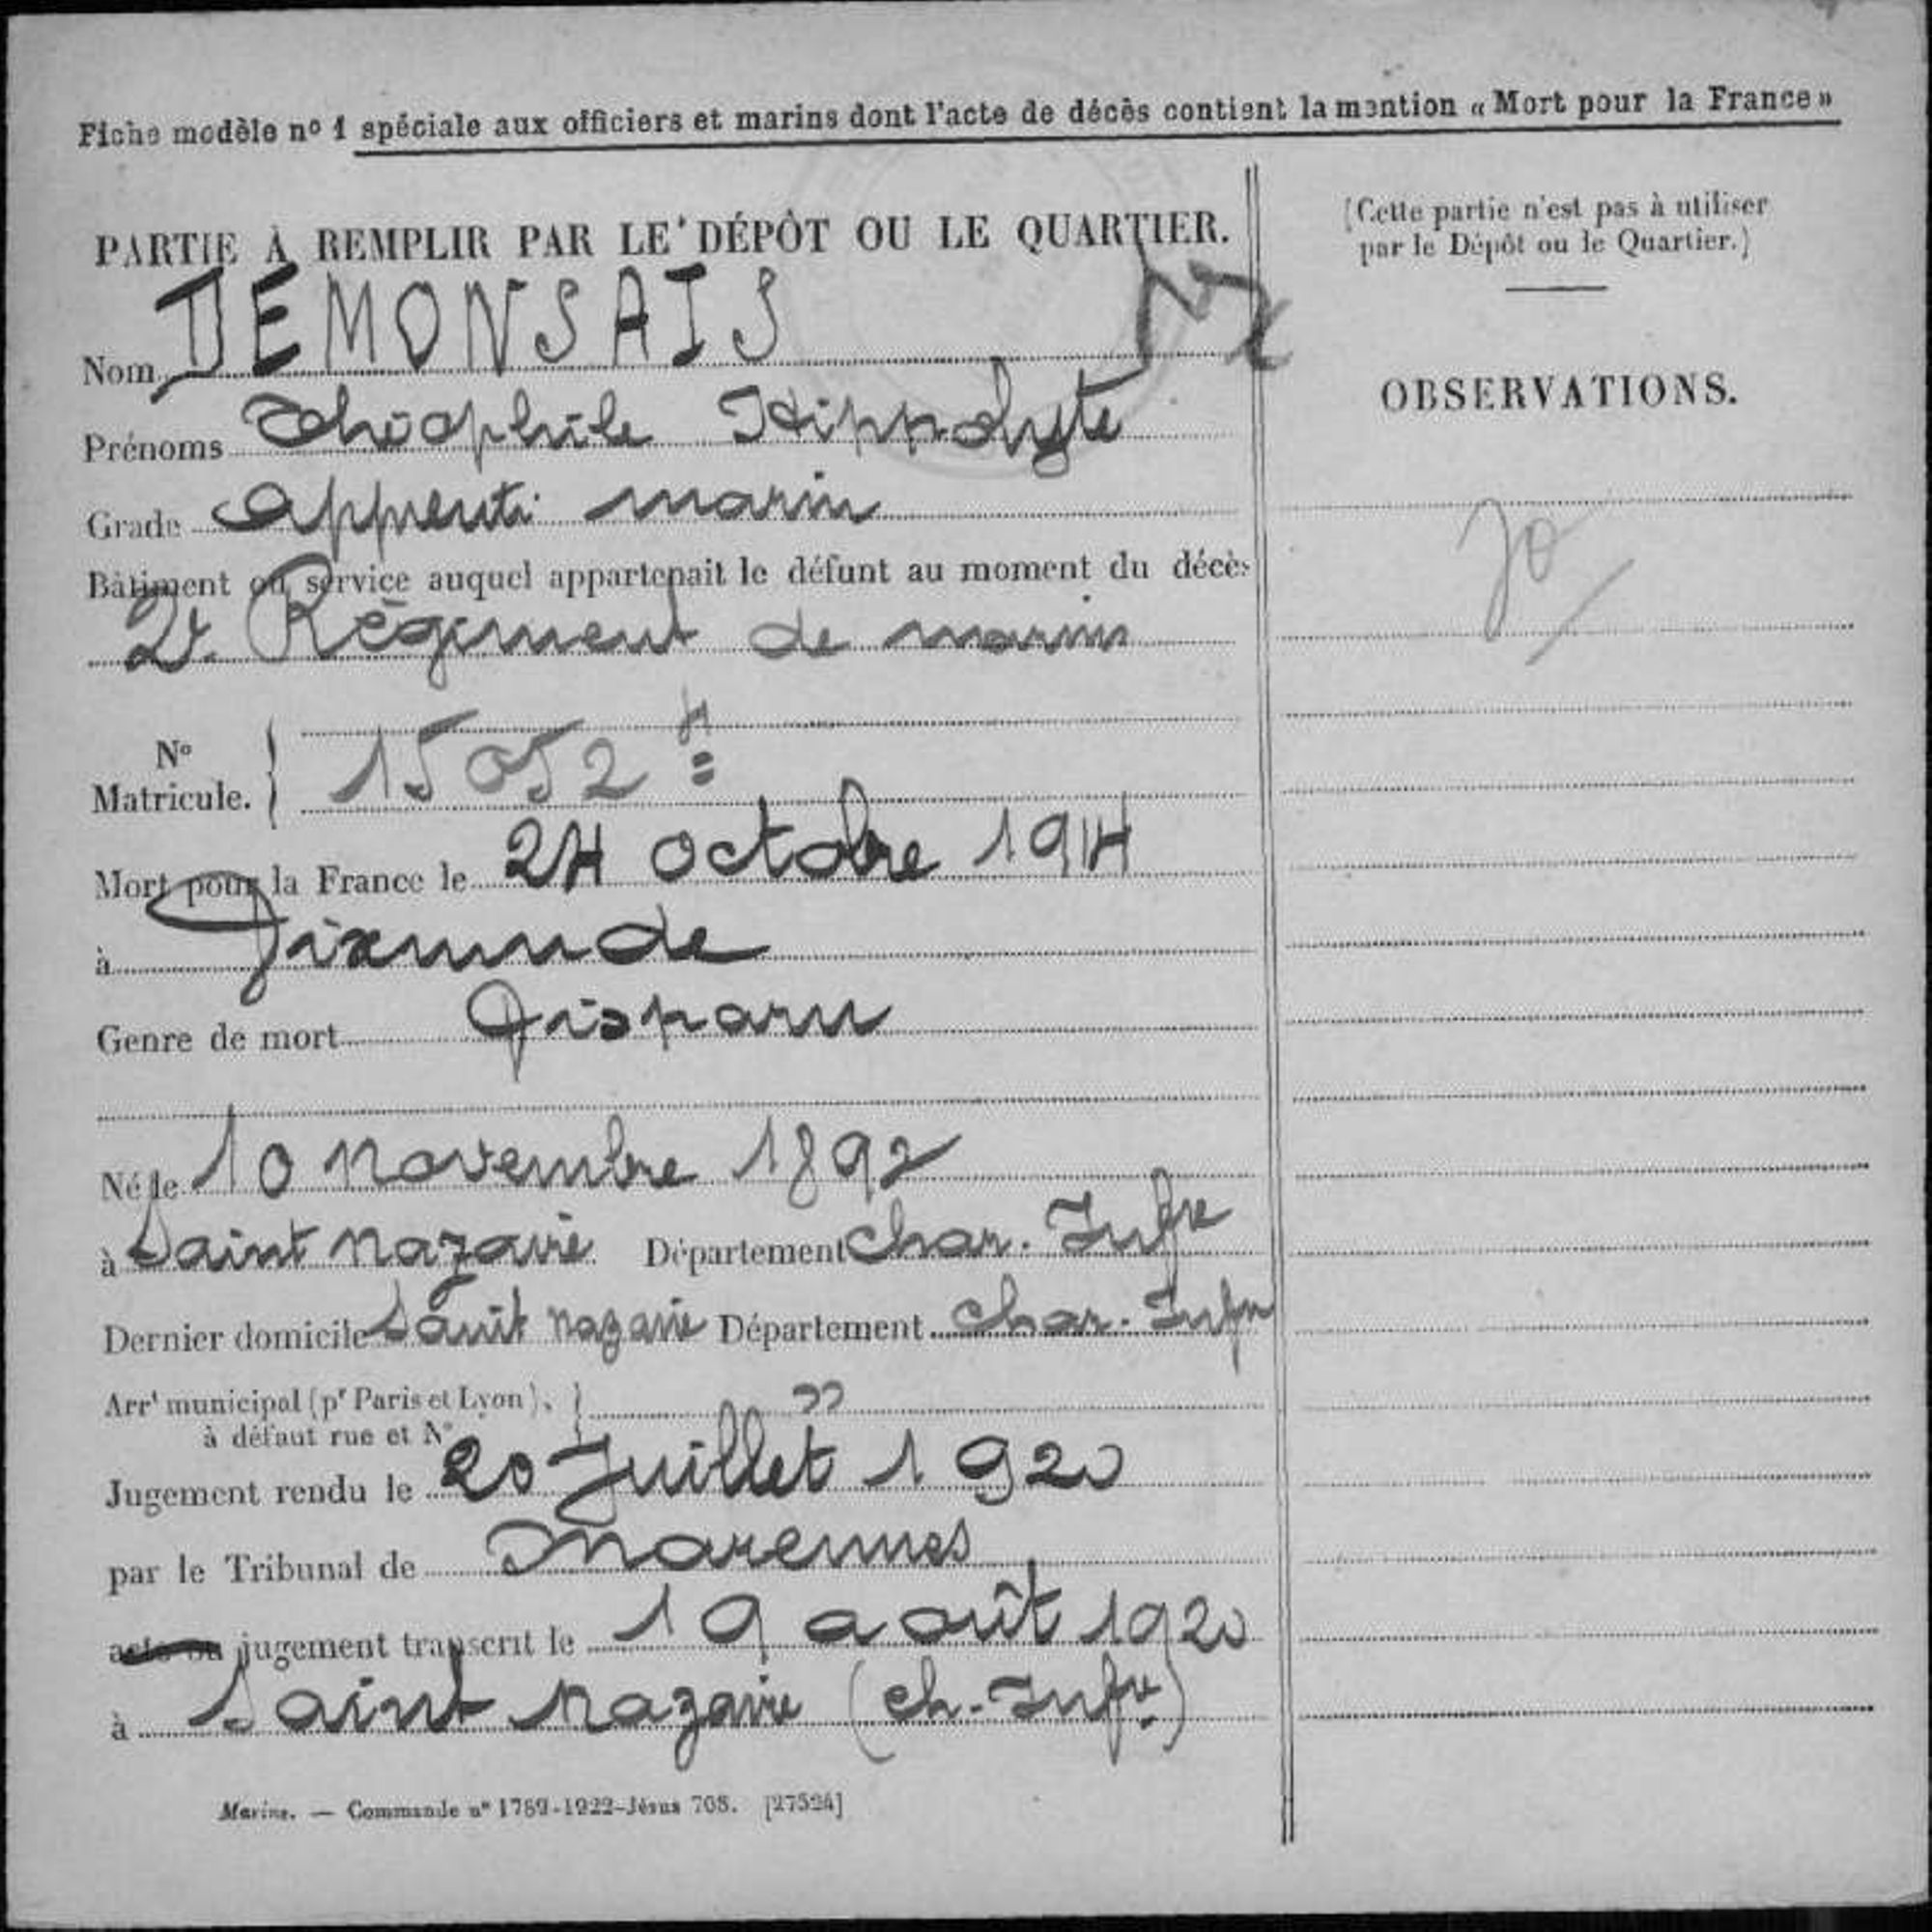 Fiche modèle nº 1 spéciale aux officiers et marins dont l'acte de décès contient la mention « Mort pour la France »
PARTIE À REMPLIR PAR LE DÉPÔT OU LE QUARTIER.
Nom DEMONSAIS
Prénoms Théophile Hippolyte
Grade Apprenti marin
Bâtiment ou service auquel appartenait le défunt au moment du décès
2e Régiment de marin
Nº Matricule. 15052 =
Mort pour la France le 24 octobre 1914
à Dixmude
Genre de mort Disparu
Né le 10 novembre 1892
à Saint Nazaire Département Char. Infre
Dernier domicile Saint Nazaire Département Char. Infre
Arrt municipal (pr Paris et Lyon), à défaut rue et Nº ??
Jugement rendu le 20 Juillet 1920
par le Tribunal de Marennes
acte ou jugement transcrit le 19 août 1920
à Saint Nazaire (Ch. Infre)
Marine. — Commande nº 1789-1922-Jésus 708. [27524]
(Cette partie n'est pas à utiliser
par le Dépôt ou le Quartier.)
OBSERVATIONS.